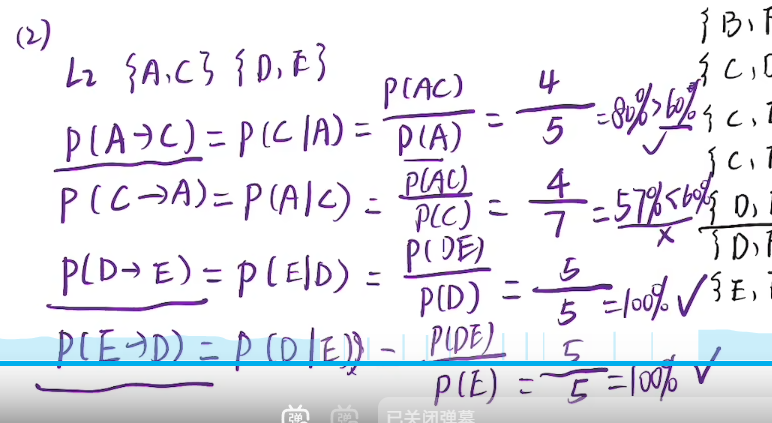 (2)
L2 {A,C} {D,E}
P(A→C) = P(C|A) = P(AC) / P(A) = 4 / 5 = 80% > 60% ✓
P(C→A) = P(A|C) = P(AC) / P(C) = 4 / 7 = 57% < 60% ×
P(D→E) = P(E|D) = P(DE) / P(D) = 5 / 5 = 100% ✓
P(E→D) = P(D|E) = P(DE) / P(E) = 5 / 5 = 100% ✓
{B,
{C,
{C,
{C,
{D,
{D,
{E,
弹 弹 已关闭弹幕